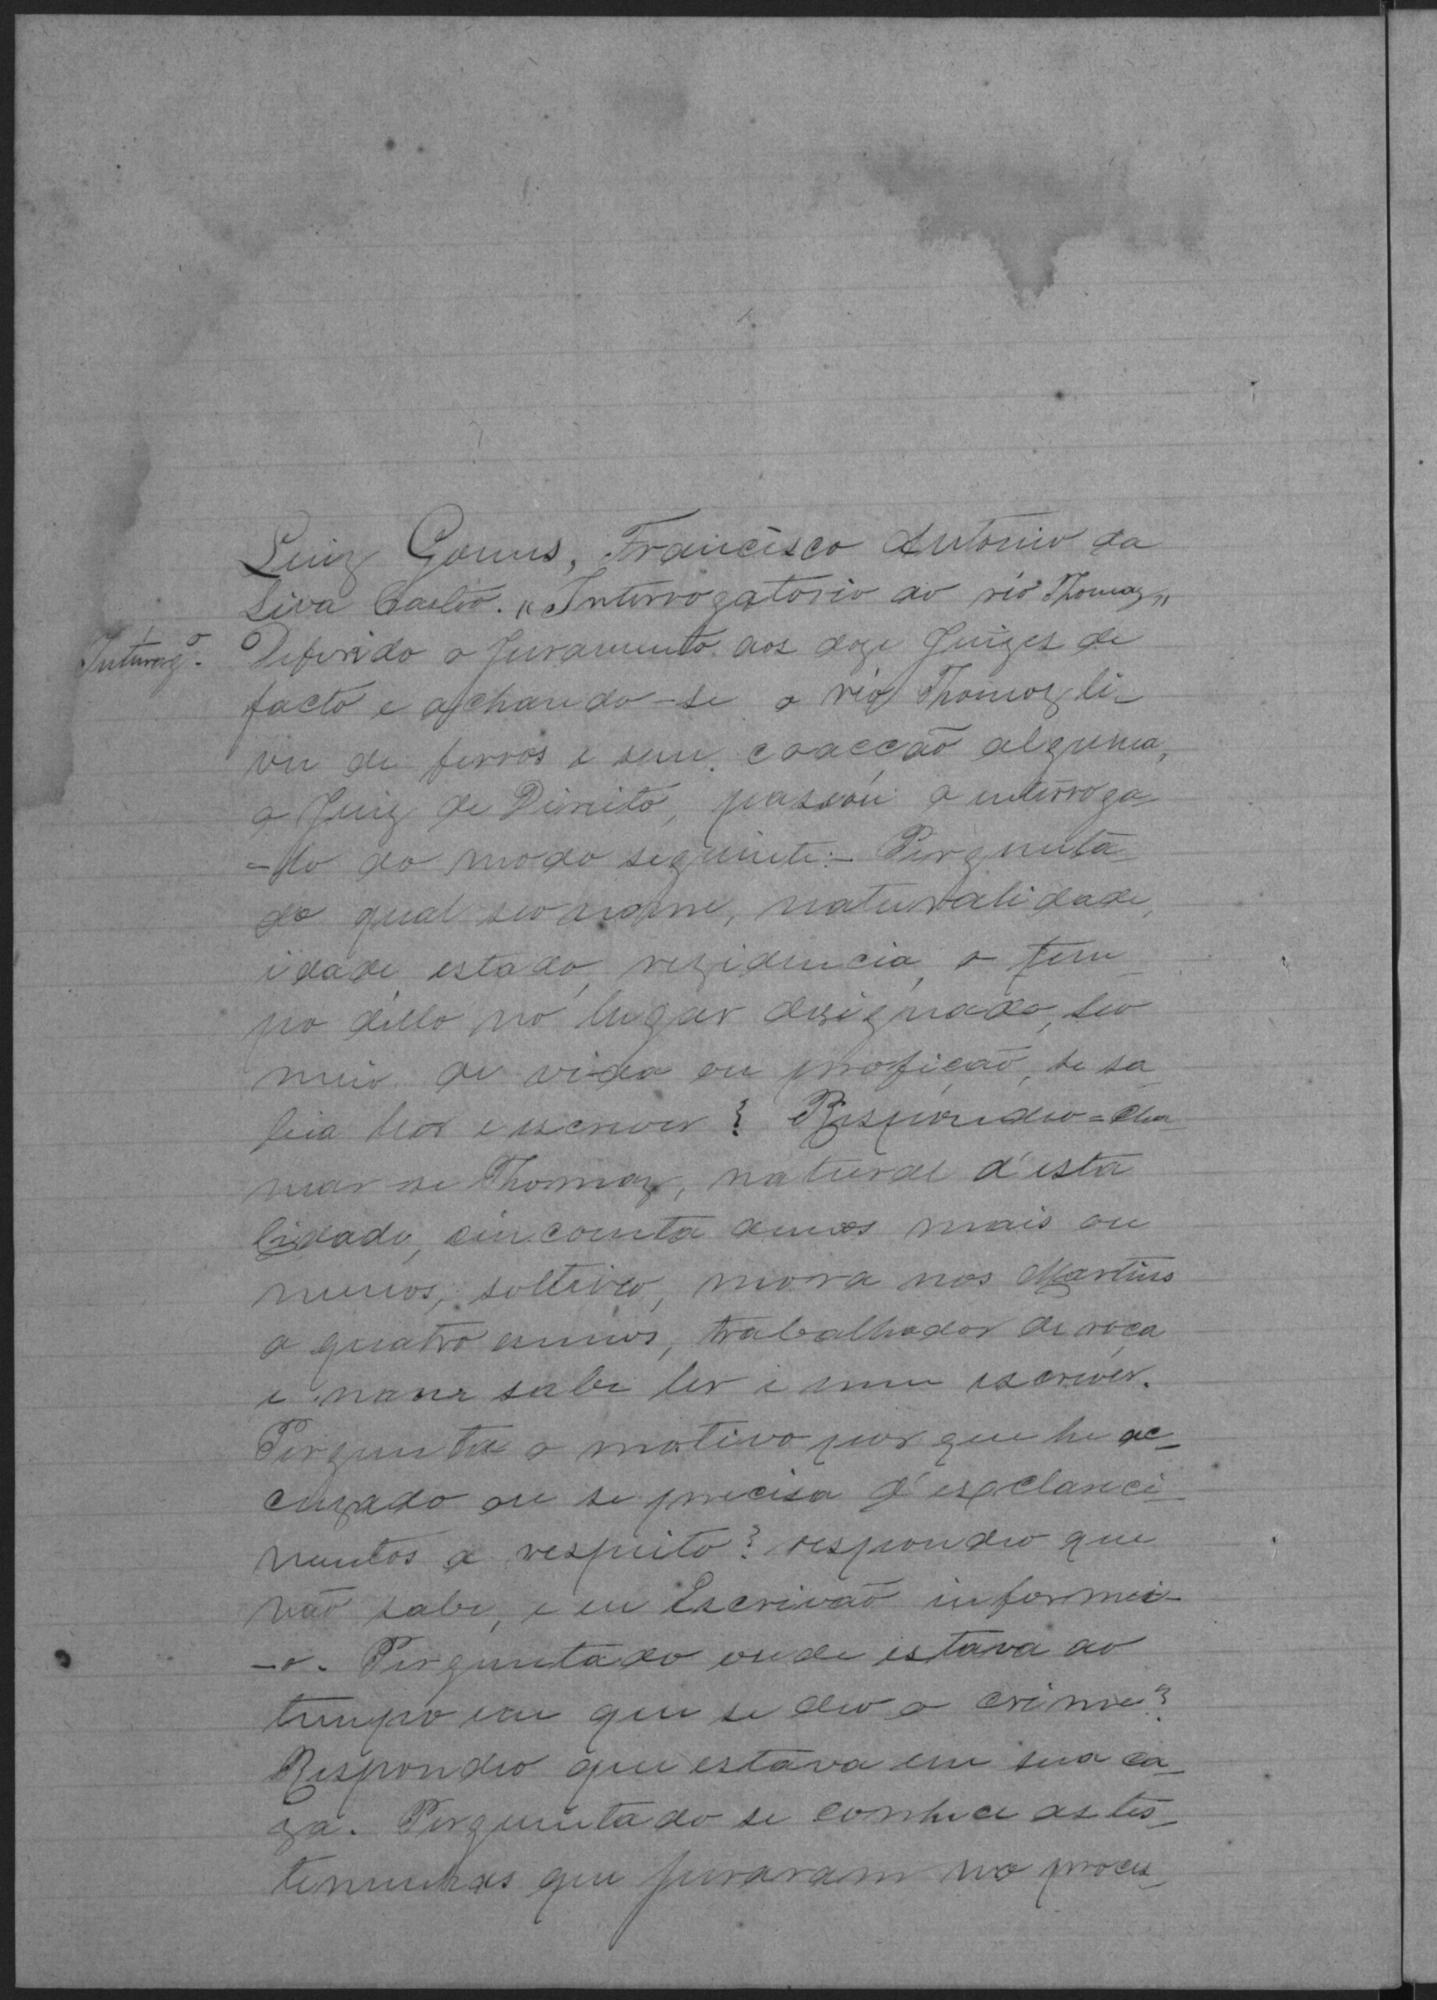 Luiz Gomes, Francisco Antonio da
Silva Castro. "Interrogatorio ao réo Thomaz"
Interrogº. Deferido o juramento aos doze Juizes de
facto e achando-se o réo Thomaz li-
vre de ferros e sem coacção alguma,
o Juiz de Direito, passou a interroga
-lo do modo seguinte:- Pergunta-
do qual seo nome, naturalidade,
idade, estado, rezidencia, o tem-
po dello no lugar dezignado, seo
meio de vida ou profição, se sa-
bia ler e escrever? Respondeo = cha-
mar se Thomaz, natural d'esta
Cidade, cincoenta annos mais ou
menos, solteiro, mora nos Martins
a quatro annos, trabalhador de roça
e nam sabe ler e nem escrever.
Pergunta o motivo por que he ac-
cuzado ou se precisa d'esclareci-
mentos a respeito? respondeo que
não sabe, e eu Escrivão informei-
-o. Perguntado onde estava ao
tempo em que se deo o crime?
Respondeo que estava em sua ca-
za. Perguntado se conhece as tes-
temunhas que juraram no proces-